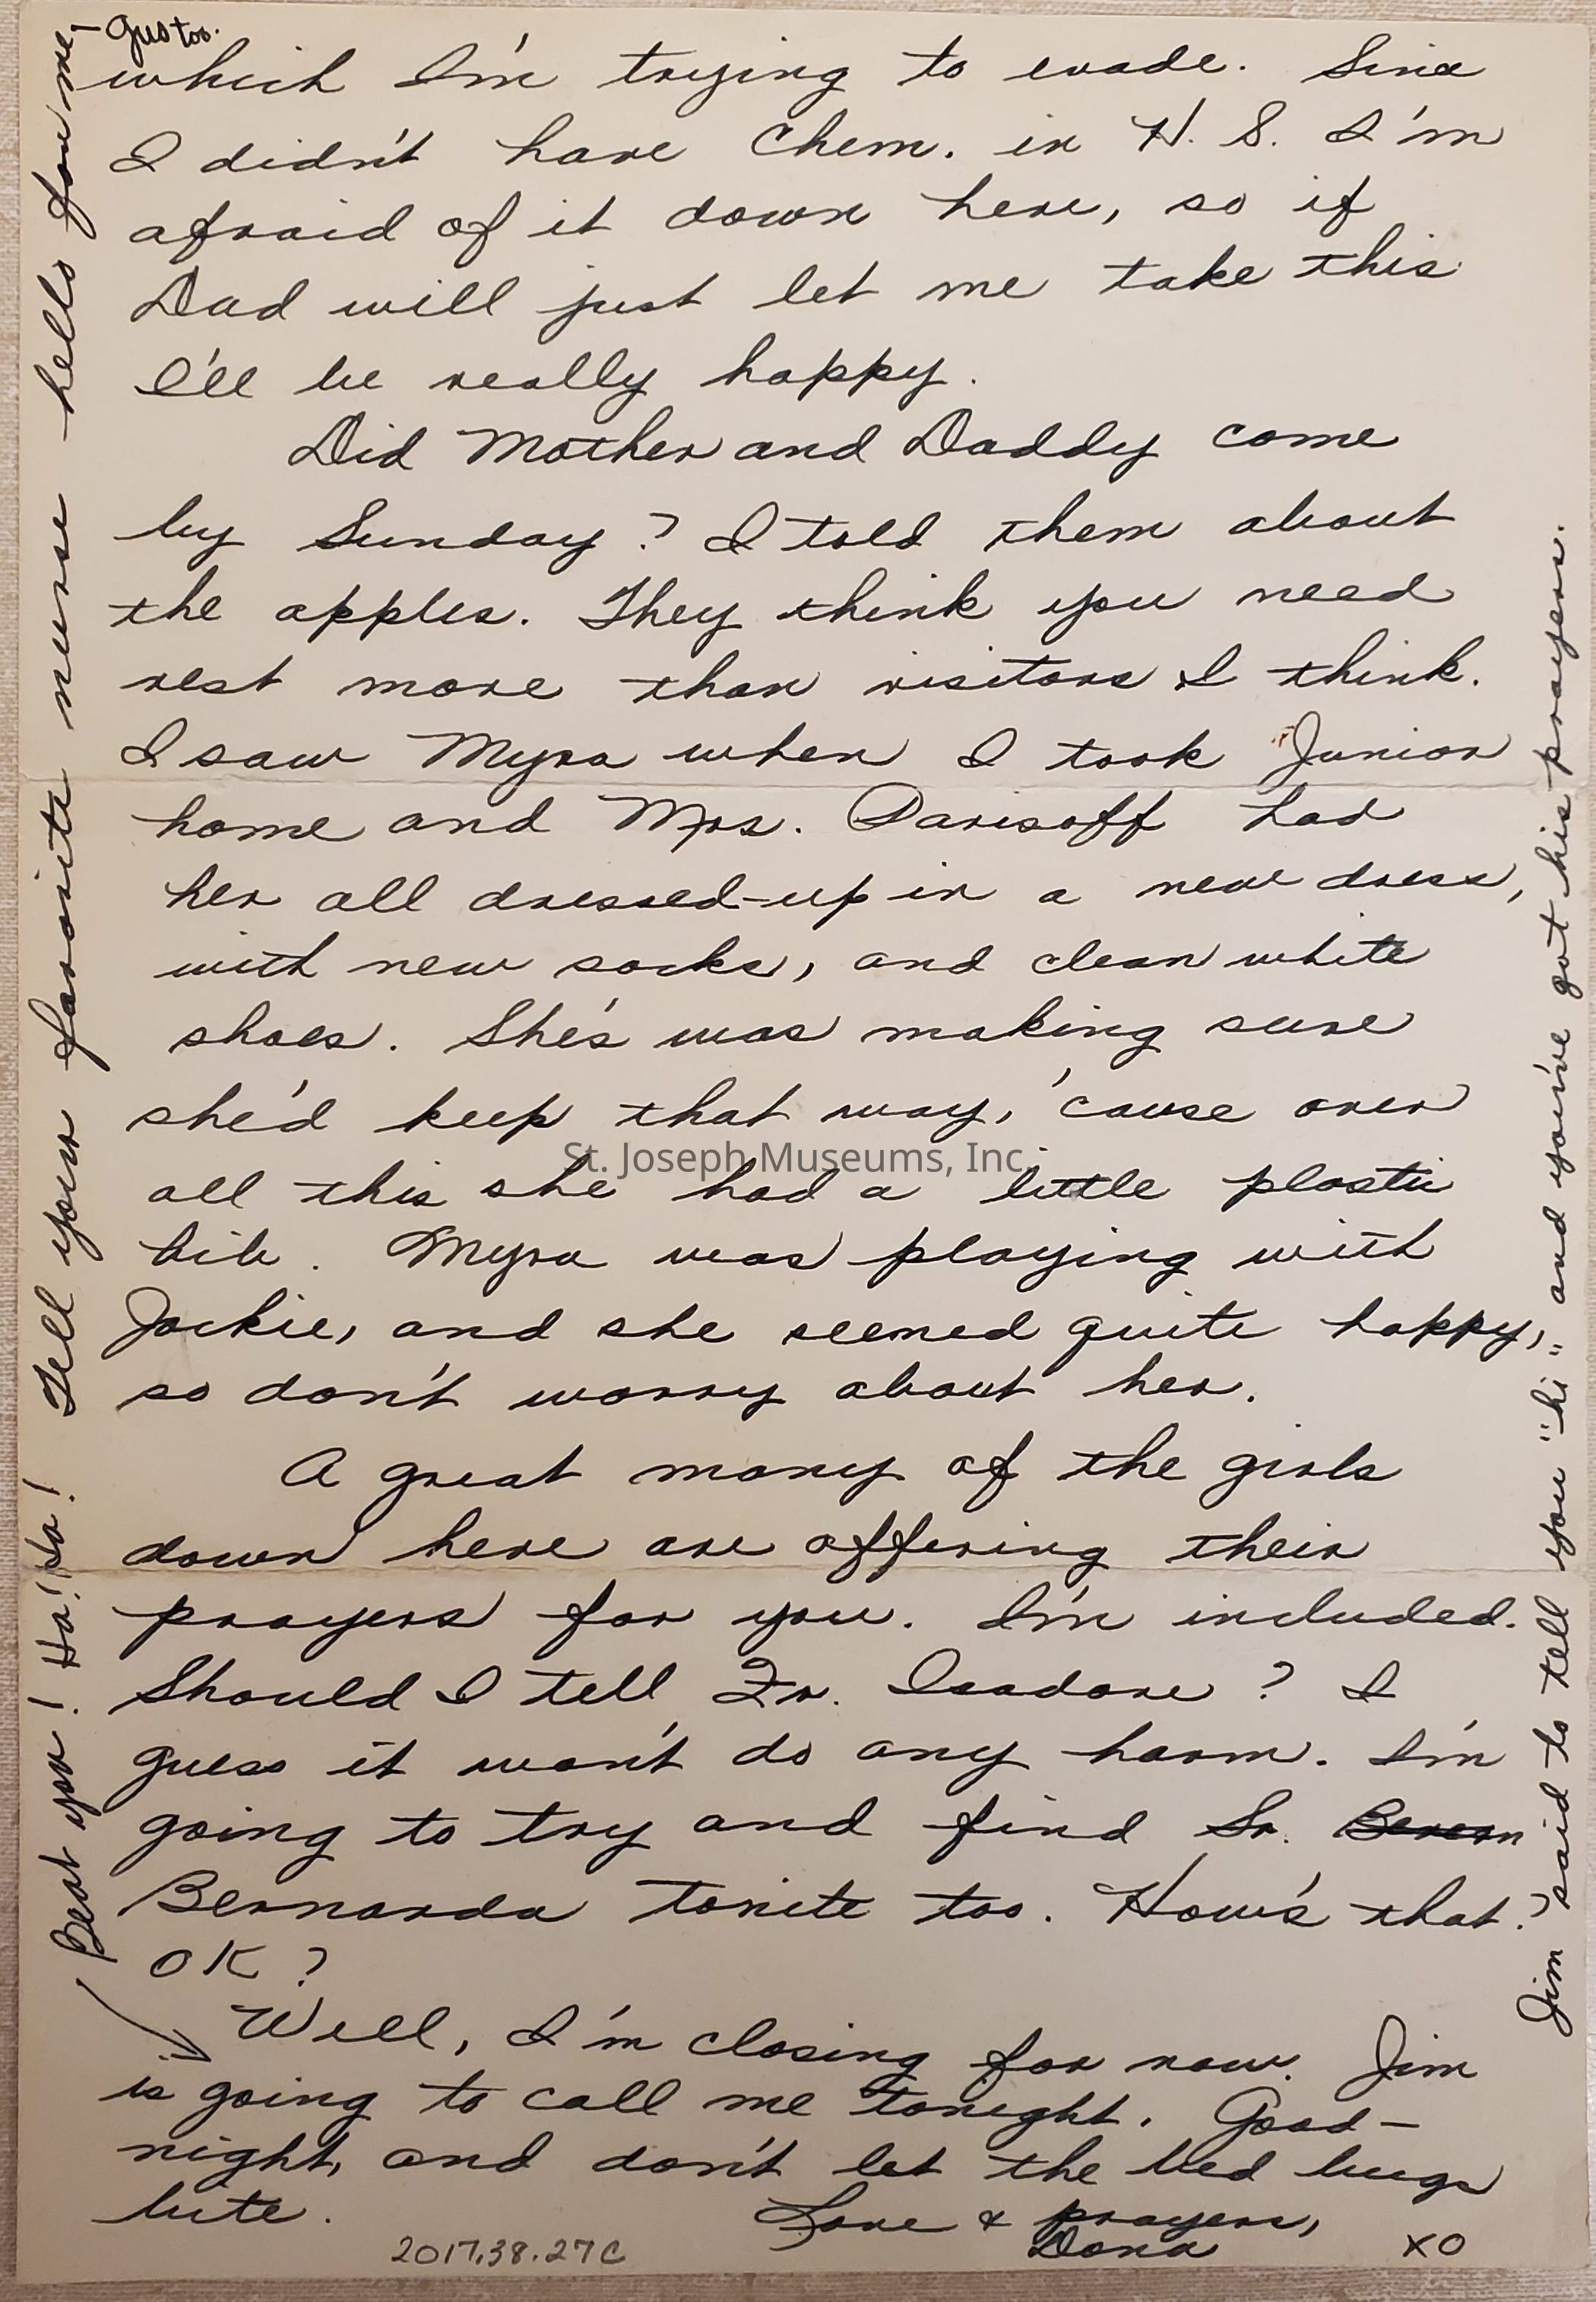 which I'm trying to evade. Since
I didn't have Chem. in H. S. I'm
afraid of it down here, so if
Dad will just let me take this
I'll be really happy.
Did Mother and Daddy come
by Sunday? I told them about
the apples. They think you need
rest more than visitors I think.
I saw Myra when I took Junior
home and Mrs. Parisoff had
her all dressed-up in a new dress,
with new socks, and clean white
shoes. She's was making sure
she'd keep that way, 'cause over
all this she had a little plastic
bib. Myra was playing with
Jackie, and she seemed quite happy,
so don't worry about her.
A great many of the girls
down here are offering their
prayers for you. I'm included.
Should I tell Fr. Isadore? I
guess it won't do any harm. I'm
going to try and find Sr.
Bernarda tonite too. How's that?
OK?
Well, I'm closing for now. Jim
is going to call me tonight. Good-
night, and don't let the bed bugs
bite.
Love & prayers,
Dona
XO
Beat you! Ha! Ha! Tell your favorite nurse hello for me,
- Gus too.
Jim said to tell you "hi" and you've got his prayers.
2017.38.27C
St. Joseph Museums, Inc.